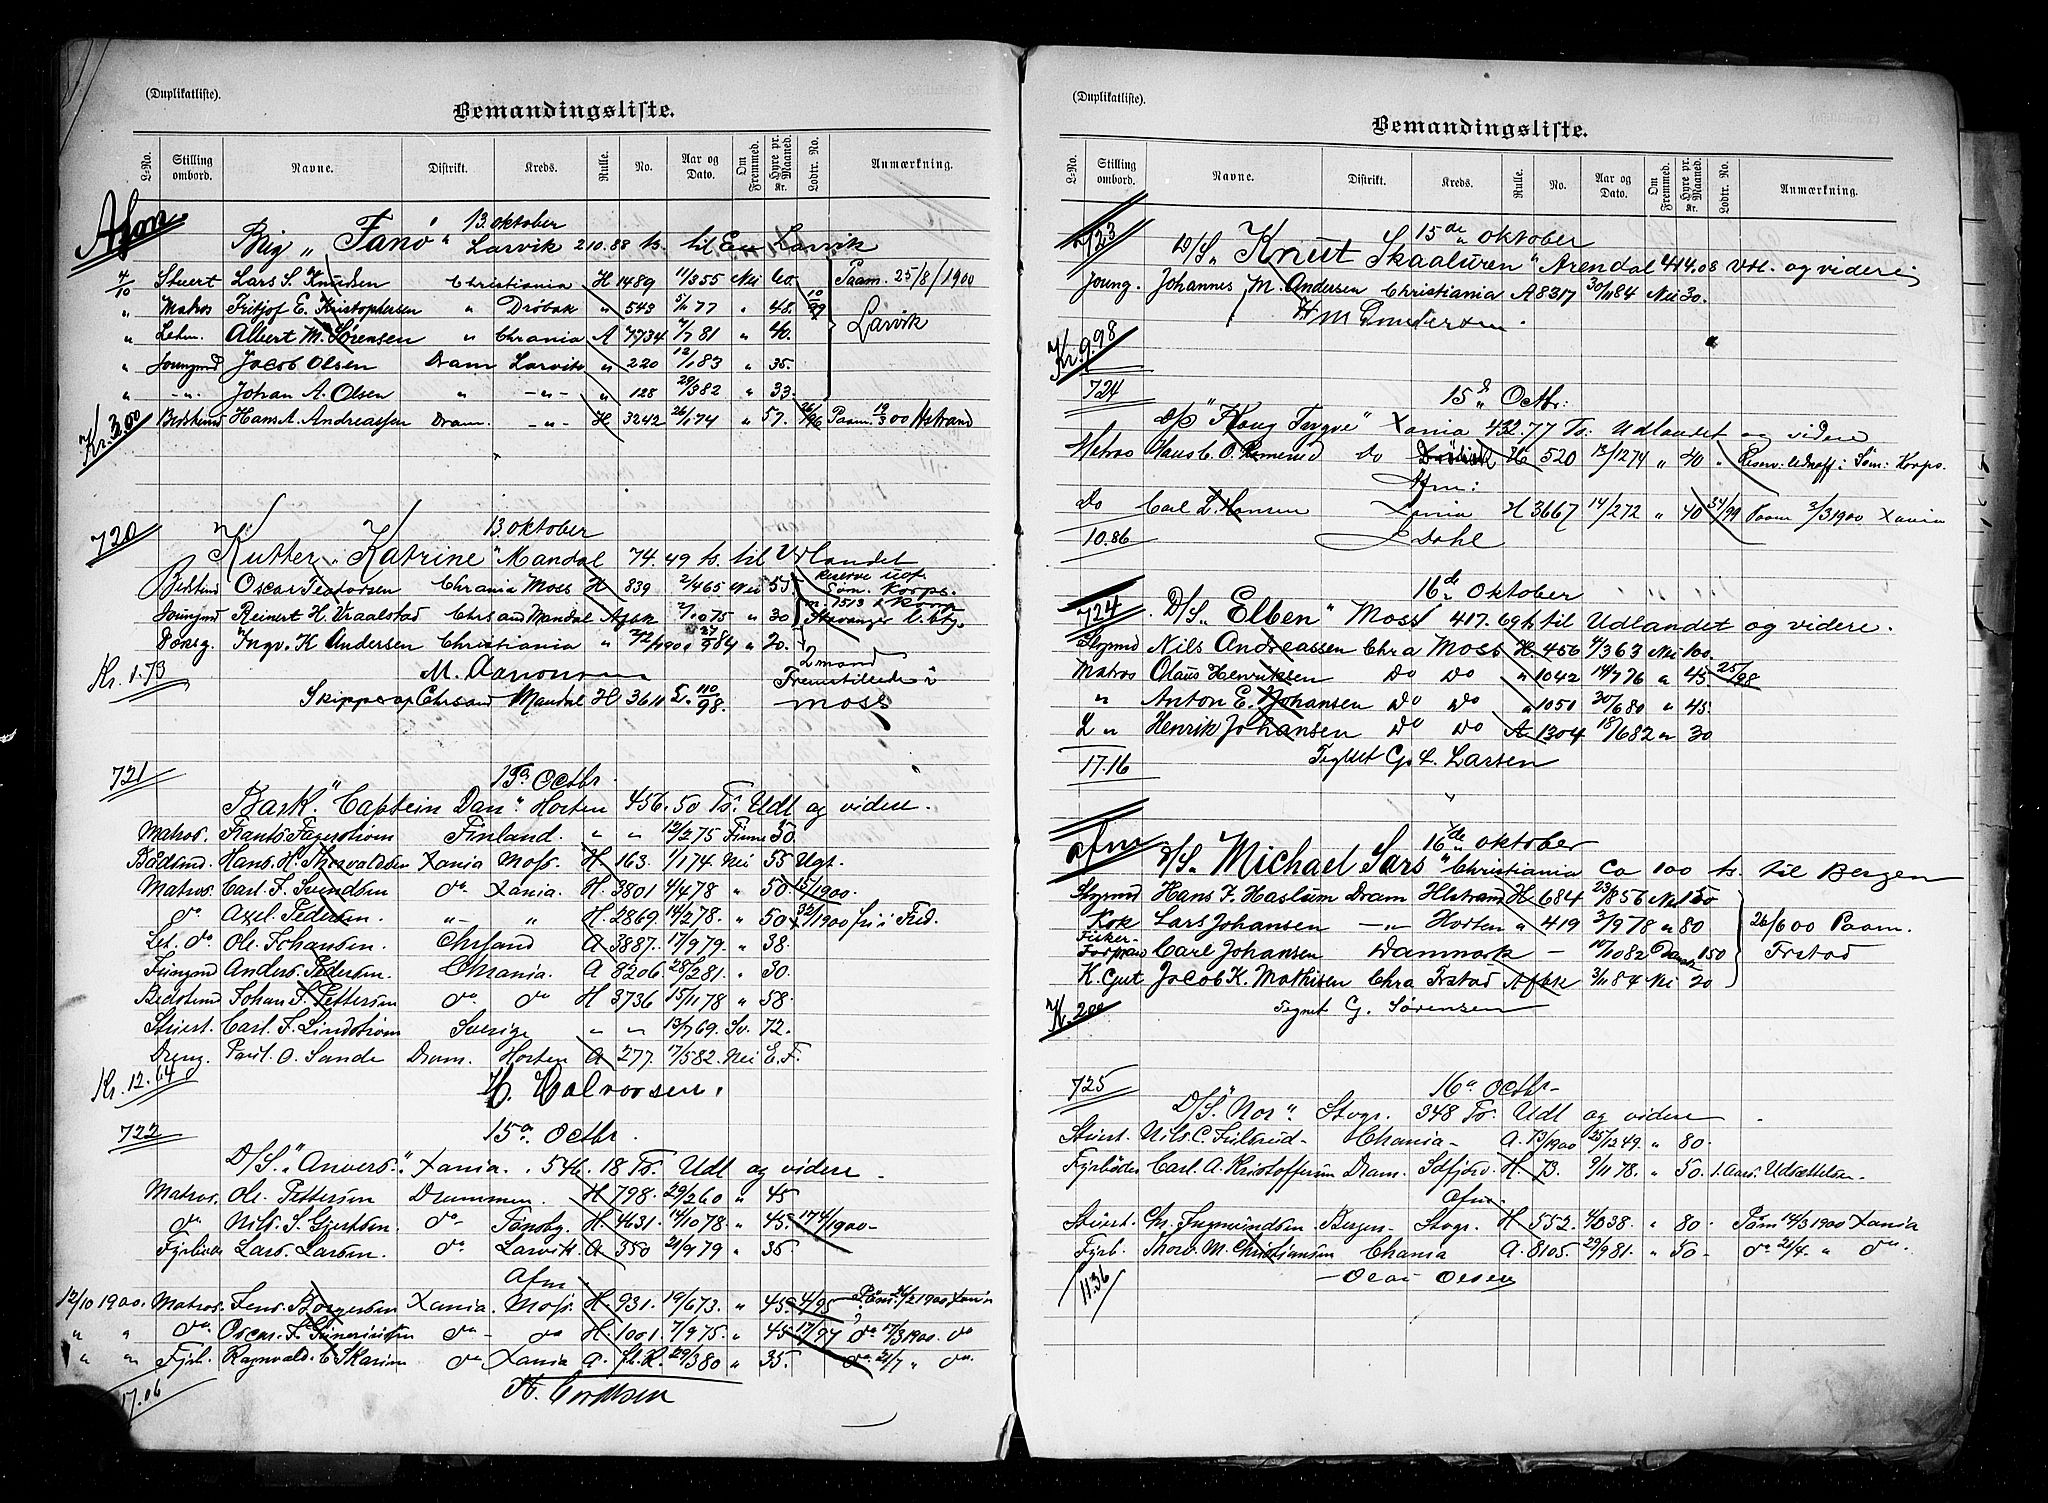 (Duplikatliste).
Bemandingsliste.
L-No. Stilling ombord. Navne. Distrikt. Kreds. Rulle. No. Aar og Dato. Om Fremmed. Hyre pr. Maaned. Kr. Lodtr. No. Anmærkning.
13 oktober
Afm Brig „Fanö" Larvik 210.88 ts. til Larvik
4/10 Stuert Lars S. Knudsen Christiania H 1489 11/3 55 Nei 60. Paam. 25/8/1900
„ Matros Fritjof E. Kristophersen „ Dröbak „ 543 5/1 77 „ 48. 10/97
„ Letm. Albert M. Sørensen „ Chrania A 7734 7/7 81 „ 40. Larvik
„ Joungmd Jacob Olsen Dram Larvik „ 220 12/1 83 „ 35.
„ -„- Johan A. Olsen „ -„- „ 128 29/3 82 „ 33.
Kr. 3.00 Bedstemd Hans A. Andreassen Dram. -„- H 3242 26/1 74 „ 57. 26/96 Paam. 19/3 00 Hstrand
720 13 oktober
Kutter „Katrine" Mandal 74.49 ts. til Udlandet
Bedstemd Oscar Teodorsen Chrania Moss H 839 2/4 65 Nei 55. reserve udf. Søm. Korps.
Joungmd Reinert H. Vraalstad Chrsand Mandal Afsk 2/10 75 „ 30 Stavanger
Dæksg. Ingv. K Andersen Christiania „ 27/9 84 „ 20.
Kr. 1.73 M. Aanonsen 2 mand
Skipper Chrsand Mandal H 3611 L. 110/98. Fremstilledes i moss
721 15de Octbr.
Bark. "Captein Dan" Horten 456.50 Ts. Udl og videre.
Matros. Frants Fagerstrøm Finland. „ „ 12/2 75 Finne 50.
Bådsmd. Hans. H. Thorvaldsen Xania Moss. H. 163. 1/1 74 Nei 55 Ugt.
Matros. Carl. F. Svendsen do. Xania. H. 3801 4/4 78 „ 50. 15/1900.
do. Axel. Pedersen. „- „ H. 2869 14/2 78. „ 50. 32/1900 fri i Fred.
Let. do. Ole. Johansen. Chrsand A. 3887. 17/9 79. „ 38.
Jungmd Anders. Pedersen. Chrania. A 8206. 28/2 81. „ 30.
Bedstemd Johan S. Pettersen do. do H 3736 15/11 78 „ 58.
Stuert. Carl. F. Lindstrøm Sverige „ „ 13/7 69. Sv. 72.
Dreng. Paul. O. Sande Dram. Horten A 277. 17/5 82. Nei E. F.
Kr. 12.64 H. Halvorsen.
722 15de Octbr.
D/S. "Anvers." Xania. 546.18 Ts. Udl og videre.
Matros. Ole. Pettersen Drammen. H 798. 29/2 60 „ 45
do. Nils. S. Gjertsen. do Tønsbg. H. 4631. 14/10 78 „ 45. 174/1900-
Fyrbøder Lars. Larsen. do. Larvik. A. 350 21/9 79 „ 35
Afm.
12/10 1900. Matros. Jens. Borgersen Xania. Moss. H. 931. 19/6 73. „ 45. 4/95
„ „ do. Oscar. F. do- do H. 1001. 7/9 75. „ 45 17/97 do 17/3 1900. do
„ „ Fyrb. Ragnvald. Xania A. fl. R. 29/3 80 „ 35. do. 21/7 „ do.
17.06
(Duplikatliste).
Bemandingsliste.
L-No. Stilling ombord. Navne. Distrikt. Kreds. Rulle. No. Aar og Dato. Om Fremmed. Hyre pr. Maaned. Kr. Lodtr. No. Anmærkning.
723 15de oktober
D/S. „Knut Skaaluren" Arendal 414.08 Udl. og videre
Joung. Johannes M. Andersen Christiania A 8317 30/11 84 Nei 30.
H M Gundersen.
Kr. 9.98
724 15d Octbr:
"Kong Trygve" Xania 432.77 Ts: Udlandet og videre
Matros Hans C. O. Do H 520 13/12 74 „ 40 „ Reserv. Udroff: Søm: Korps.
Afm:
Do Carl L. Hansen Xania H 3667 14/2 72 „ 40 34/99 Paam 2/3 1900 Xania
10.86 L Dahl
16de oktober
724 D/S. „Elben" Moss 417.69 ts. til Udlandet og videre.
Styrmd Nils Andreassen Chra Moss H. 456 4/3 63 Nei 100.
Matros Olaus Henriksen Do Do „ 1042 14/7 76 „ 45 25/98
„ Anton E. Johansen Do Do „ 1051 30/6 80 „ 45.
L „ Henrik Johansen Do Do A 1304 18/6 82 „ 30
17.16 Tegnet G. L. Larsen
16de oktober
Afm D/S. „Michael Sars" Christiania ca 100 ts. til Bergen
Styrmd Hans F. Haslum Dram Hlstrand H. 684 23/8 56 Nei 150
Kok Lars Johansen -„- Horten „ 419 3/9 78 „ 80 26/6 00 Paam.
Fisker- Carl Johansen Danmark - 10/10 82 Dansk 150 Frstad
K. Gut Jacob K. Mathisen Chra Frstad Afsk 3/11 84 Nei 20
K. 2.00 Tegnet G. Sørensen
725 16de Octbr-
D/S. "Nor" Stvgr. 348 Ts. Udl og videre
Stuert. Nils. C. Chania- A. 73/1900 25/12 49. „ 80.
Fyrbøder Carl. A. Kristoffersen Dram. Sdfjord. H. 73. 9/11 78. „ 50. 1. Aars. Udsættelse.
Afm.
Stuert. Chr. Ingmundsen Bergen- Stvgr. H 552. 4/10 38. „ 80. Paam 14/3 1900 Xania
Fyrb. Thorv. M. Christiansen Chania A. 8105. 29/9 81. „ 50- do 21/4. „ do.
11.36 Olai Olsen